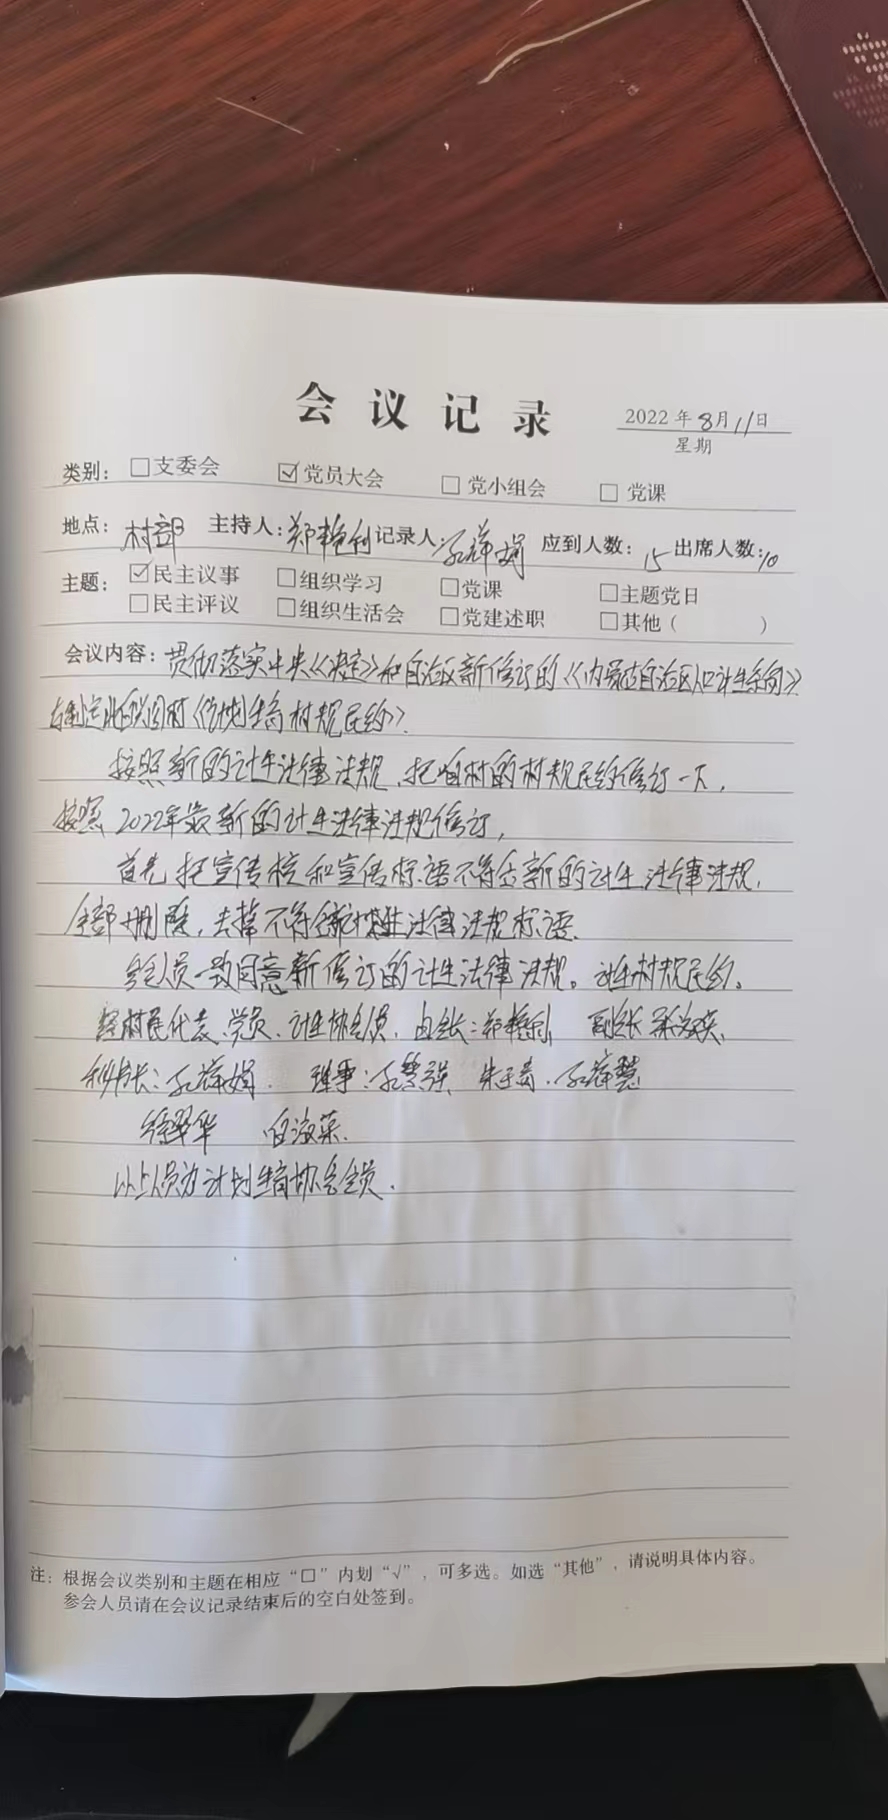 会议记录
2022年8月11日
星期
类别：□支委会 ☑党员大会 □党小组会 □党课
地点：村部 主持人：郑艳利 记录人： 应到人数：15 出席人数：10
主题：☑民主议事 □组织学习 □党课 □主题党日
□民主评议 □组织生活会 □党建述职 □其他（ ）
会议内容：贯彻落实中央《决定》和自治区新修订的《内蒙古自治区人口计生条例》
村《计划生育村规民约》.
按照新的计生法律法规，把咱村的村规民约修订一下，
按照2022年最新的计生法律法规修订，
首先把宣传栏和宣传标语不符合新的计生法律法规，
全部删除，去掉不符合新计生法律法规标语.
会员一致同意新修订的计生法律法规。计生村规民约。
经村民代表、党员、计生协会员，由会长：郑艳利 副会长
秘书长： 理事：
白海菜.
以上人员为计划生育协会会员.
注：根据会议类别和主题在相应“□”内划“√”，可多选。如选“其他”，请说明具体内容。
参会人员请在会议记录结束后的空白处签到。